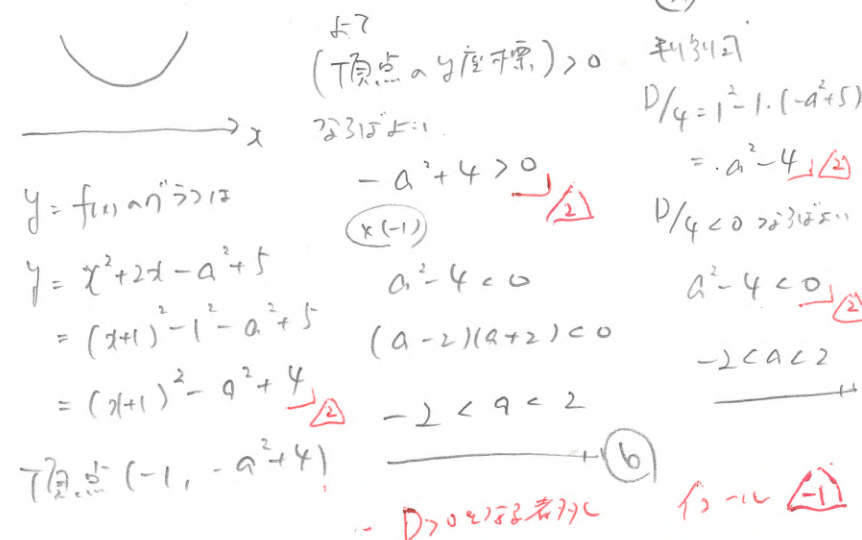 x
y = f(x)のグラフは
y = x²+2x-a²+5
= (x+1)²-1²-a²+5
= (x+1)²-a²+4 2
頂点 (-1, -a²+4)
よって
(頂点のy座標) > 0
ならばよい.
-a²+4 > 0 2
×(-1)
a²-4 < 0
(a-2)(a+2) < 0
-2 < a < 2
6
判別式
D/4 = 1²-1・(-a²+5)
= a²-4 2
D/4 < 0 ならばよい
a²-4 < 0 2
-2 < a < 2
D>0
イコール -1